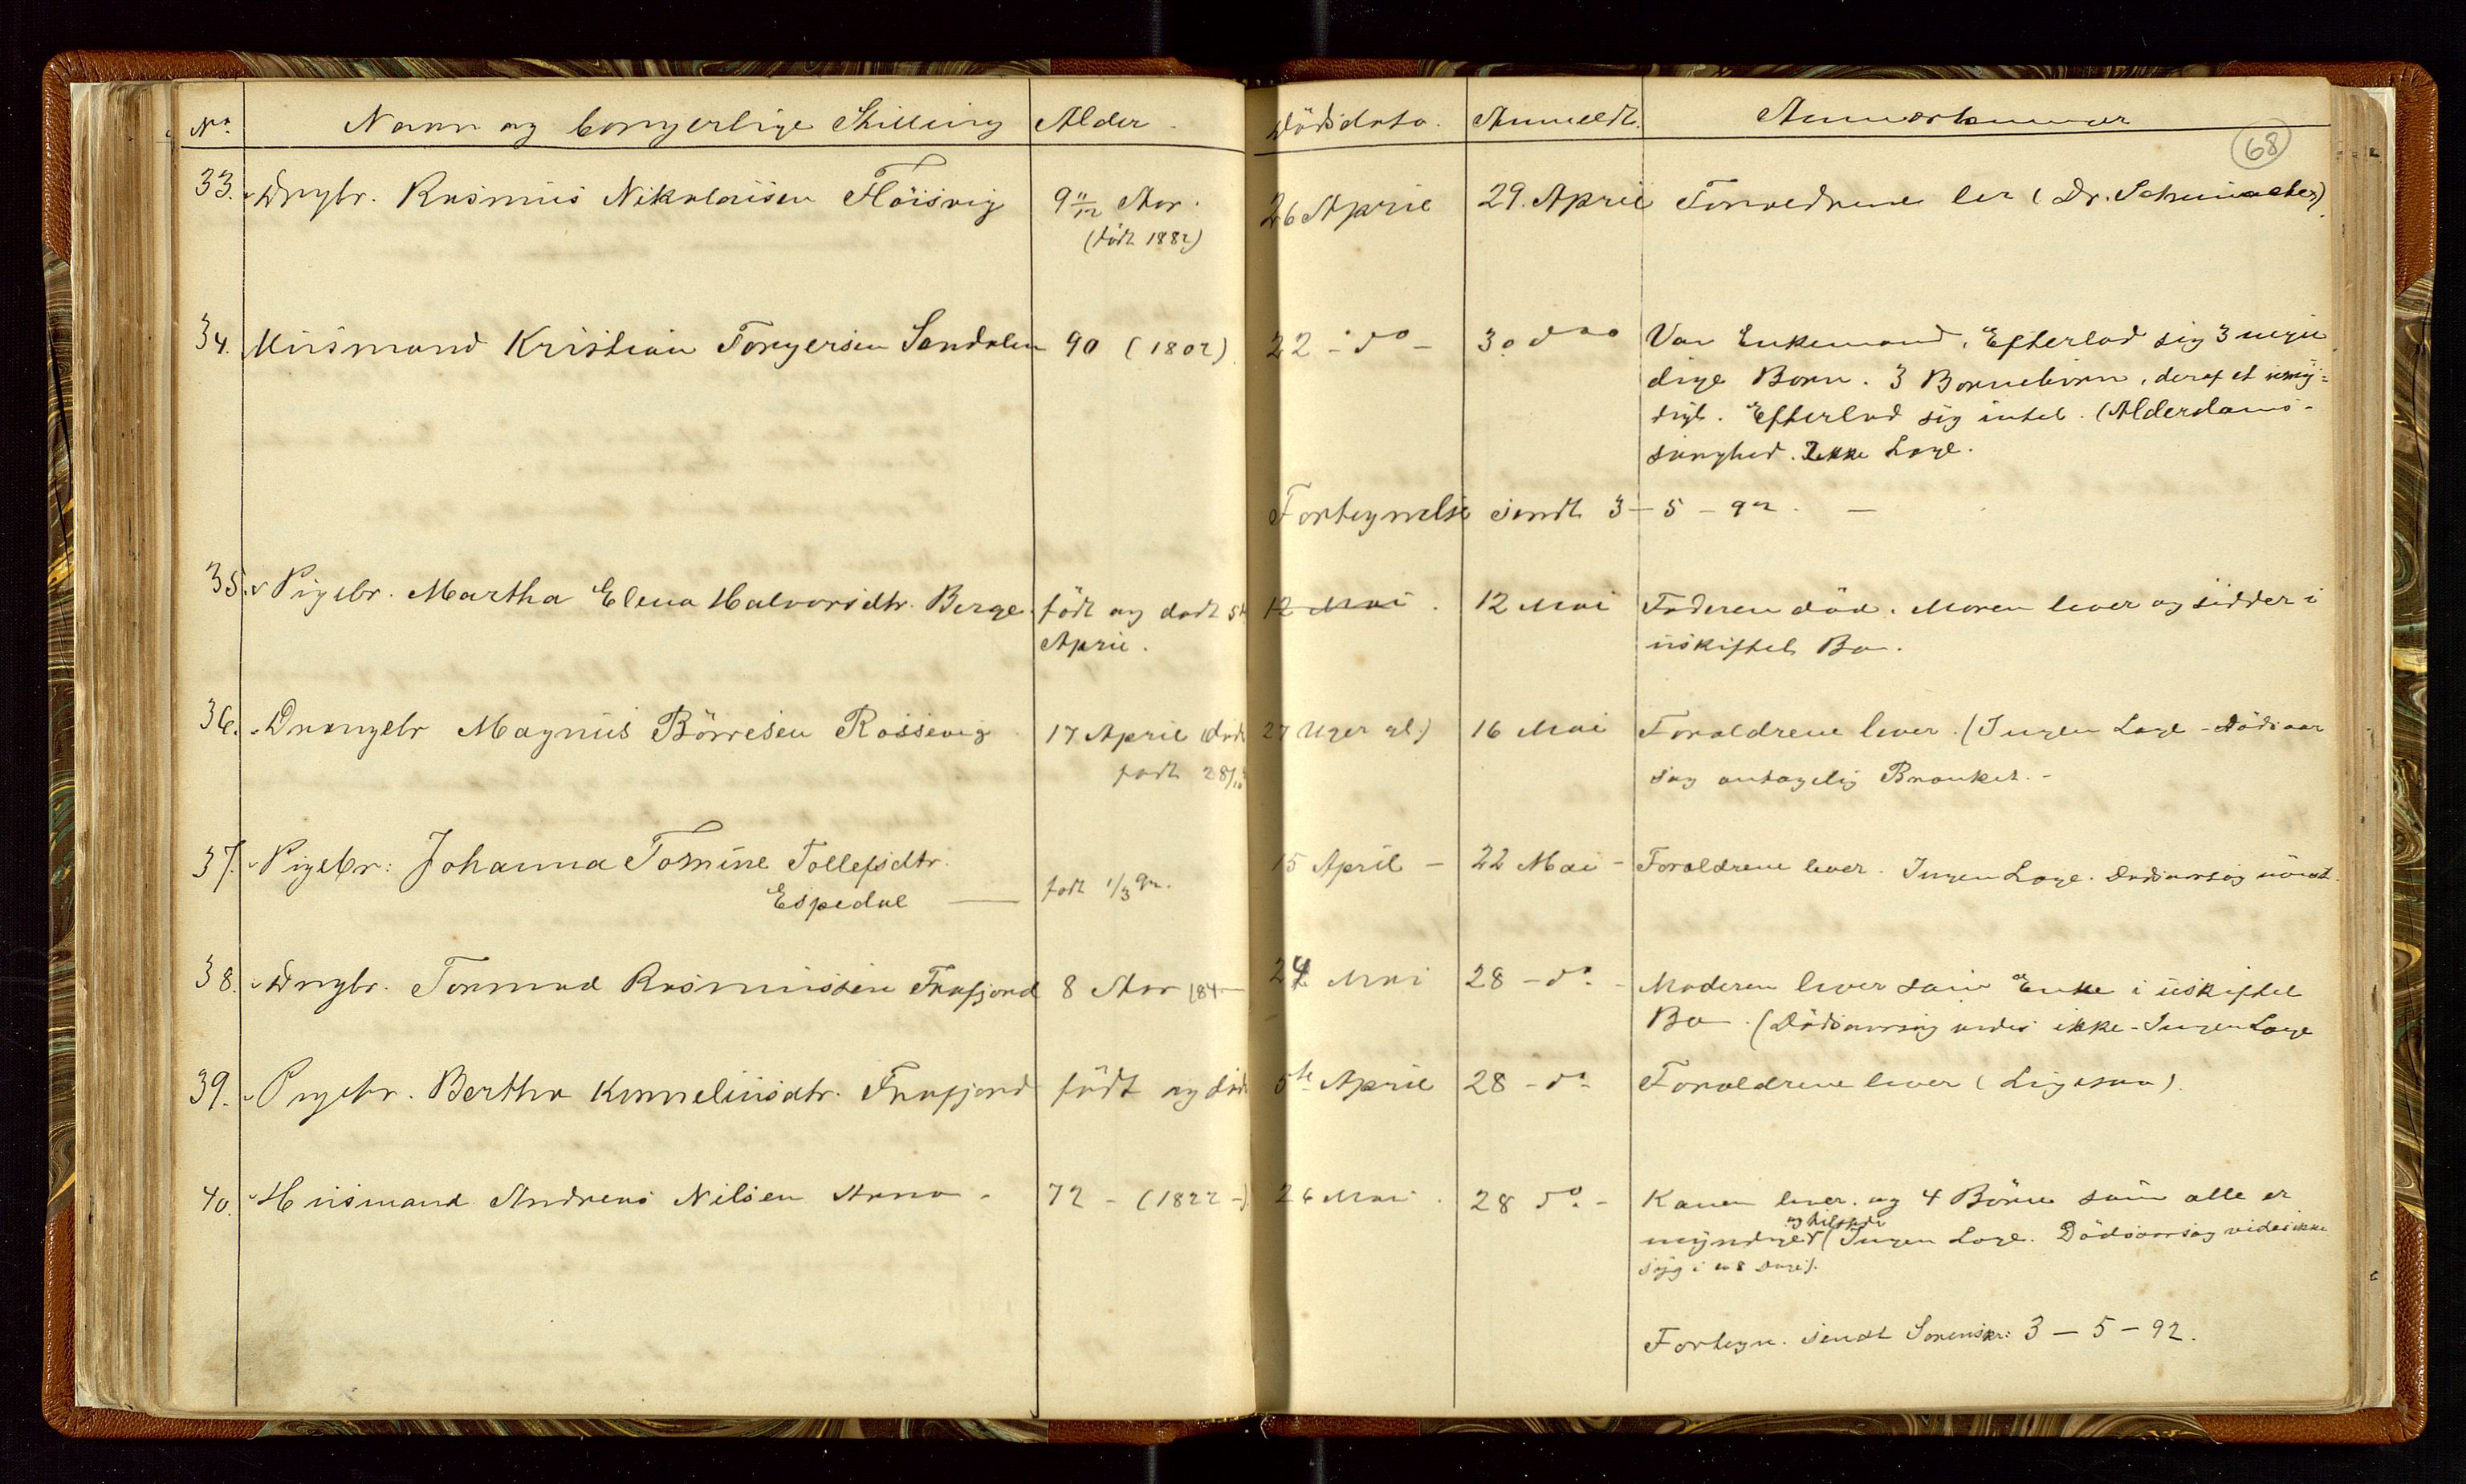 No. Navn og borgerlige Stilling Alder. Dödsdato. Anmeldt. Anmærkninger
68
33. Drgbr. Rasmus Nikolaisen Flöisvig 9 11/12 Aar. 26 April 29. April Forældrene lever (Dr. Schumacher).
(födt 1882)
34. Huusmand Kristian Torgersen Sandalen 90 (1802). 22 - do - 30 do Var Enkemand. Efterlod sig 3 myn
dige Börn. 3 Börnebörn, deraf et umyn=
digt. Efterlod sig intet. (Alderdoms-
svaghed. Ikke Læge.
Fortegnelse sendt 3 - 5 - 92. —
35. Pigebr. Martha Elena Halvorsdtr. Berge. födt og död 5te 12 Mai. 12 Mai Faderen död. Moren lever og sidder i
April. uskiftet Bo.
36. Drengebr Magnus Börresen Rossevig 17 April (död 27 Uger gl.) 16 Mai Forældrene lever. (Ingen Læge - Dödsaar
födt 28/10 sag antagelig Bronket. -
37. Pigebr: Johanna Tomine Tollefsdtr. 15 April - 22 Mai - Forældrene lever. Ingen Læge. Dödsaarsag
Espedal — födt 1/3 92.
38. Drgbr. Tormod Rasmussen Frafjord 8 Aar 184— 24 Mai 28 - do. - Moderen lever som Enke i uskiftet
Bo. (Dödsaarsag vides ikke - Ingen Læge
39. Pigebr. Bertha Korneliusdtr. Frafjord födt og död 5te April 28 - do - Forældrene lever (Ligesaa).
40. Huusmand Andreas Nilsen 72 - (1822 -) 26 Mai. 28 do. - Konen lever. og 4 Börn som alle er
myndige (Ingen Læge. Dödsaarsag vides ikke
syg i 8 Dage).
Fortegn. sendt Sorenskr: 3 - 5 - 92.